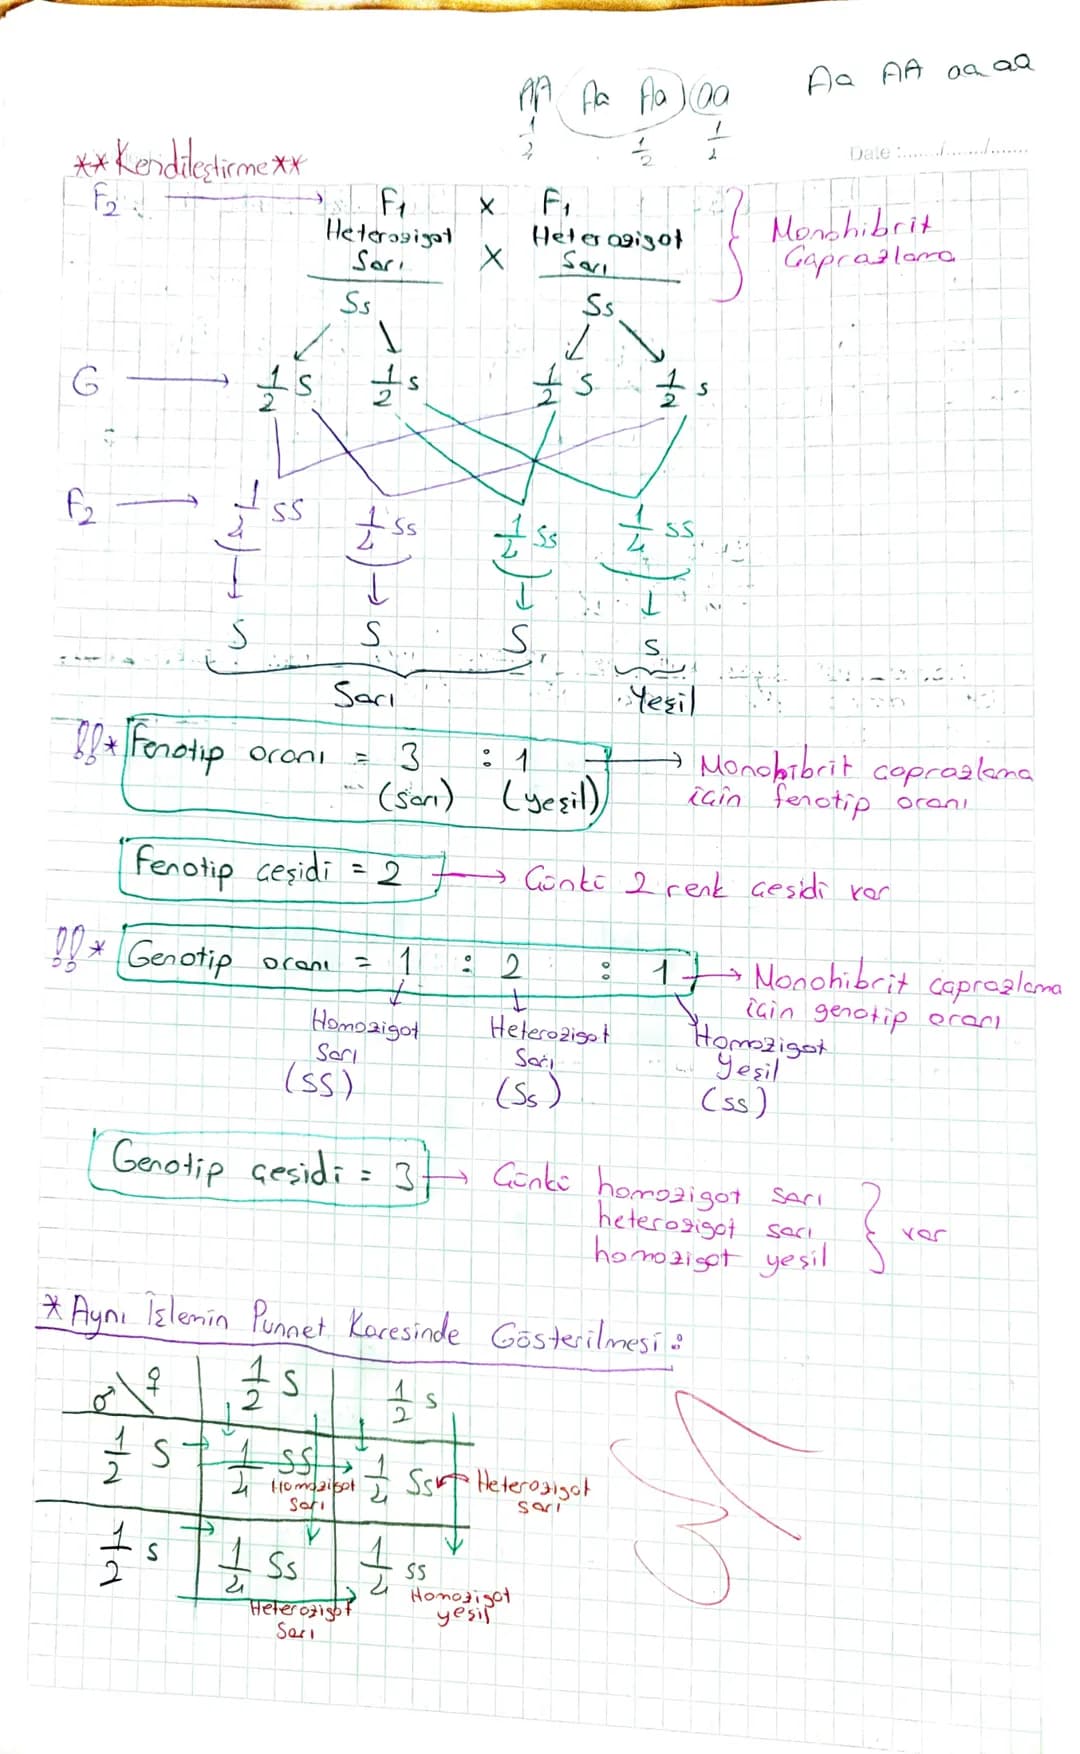 AA Aa Aa aa Aa AA aa aa
1/2 1/2 1/2
Date :....../....../......
**Kendileştirme**
F₂ : → F₁ x F₁
Heterozigot x Heterozigot
Sarı Sarı
Monohibrit
Çaprazlama
Ss Ss
G → 1/2 S 1/2 s 1/2 S 1/2 s
F₂ → 1/4 SS 1/4 Ss 1/4 Ss 1/4 ss
S S S s
Sarı Yeşil
!!* Fenotip oranı = 3 : 1 → Monohibrit çaprazlama
(sarı) (yeşil) için fenotip oranı
Fenotip çeşidi = 2 → Çünkü 2 renk çeşidi var
!!* Genotip oranı = 1 : 2 : 1 → Monohibrit çaprazlama
için genotip oranı
Homozigot Heterozigot Homozigot
Sarı Sarı Yeşil
(SS) (Ss) (ss)
Genotip çeşidi = 3 → Çünkü homozigot sarı
heterozigot sarı var
homozigot yeşil
*Aynı İşlemin Punnet Karesinde Gösterilmesi :
♂\♀ 1/2 S 1/2 s
1/2 S 1/4 SS 1/4 Ss Heterozigot
Homozigot sarı
Sarı
1/2 s 1/4 Ss 1/4 ss
Heterozigot Homozigot
Sarı yeşil